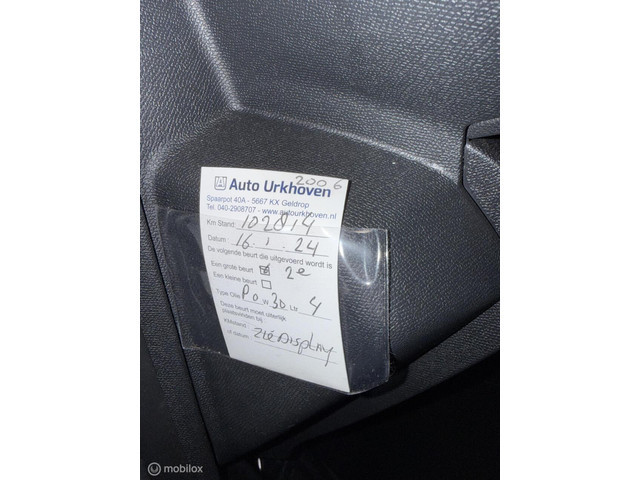 2006
Auto Urkhoven
Spaarpot 40A - 5667 KX Geldrop
Tel. 040-2908707 - www.autourkhoven.nl
Km Stand: 102814
Datum: 16.1.24
De volgende beurt die uitgevoerd wordt is
Een grote beurt 2e
Een kleine beurt
Type Olie Po w30 Ltr 4
Deze beurt moet uiterlijk
plaatsvinden bij:
KMstand:
of datum: Zie Display
mobilox